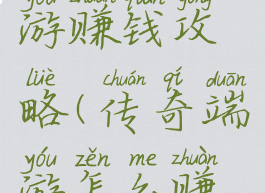 yóu zhuàn qián gōng
游赚钱攻
lüè chuán qí duān
略(传奇端
yóu zěn me zhuàn
游怎么赚